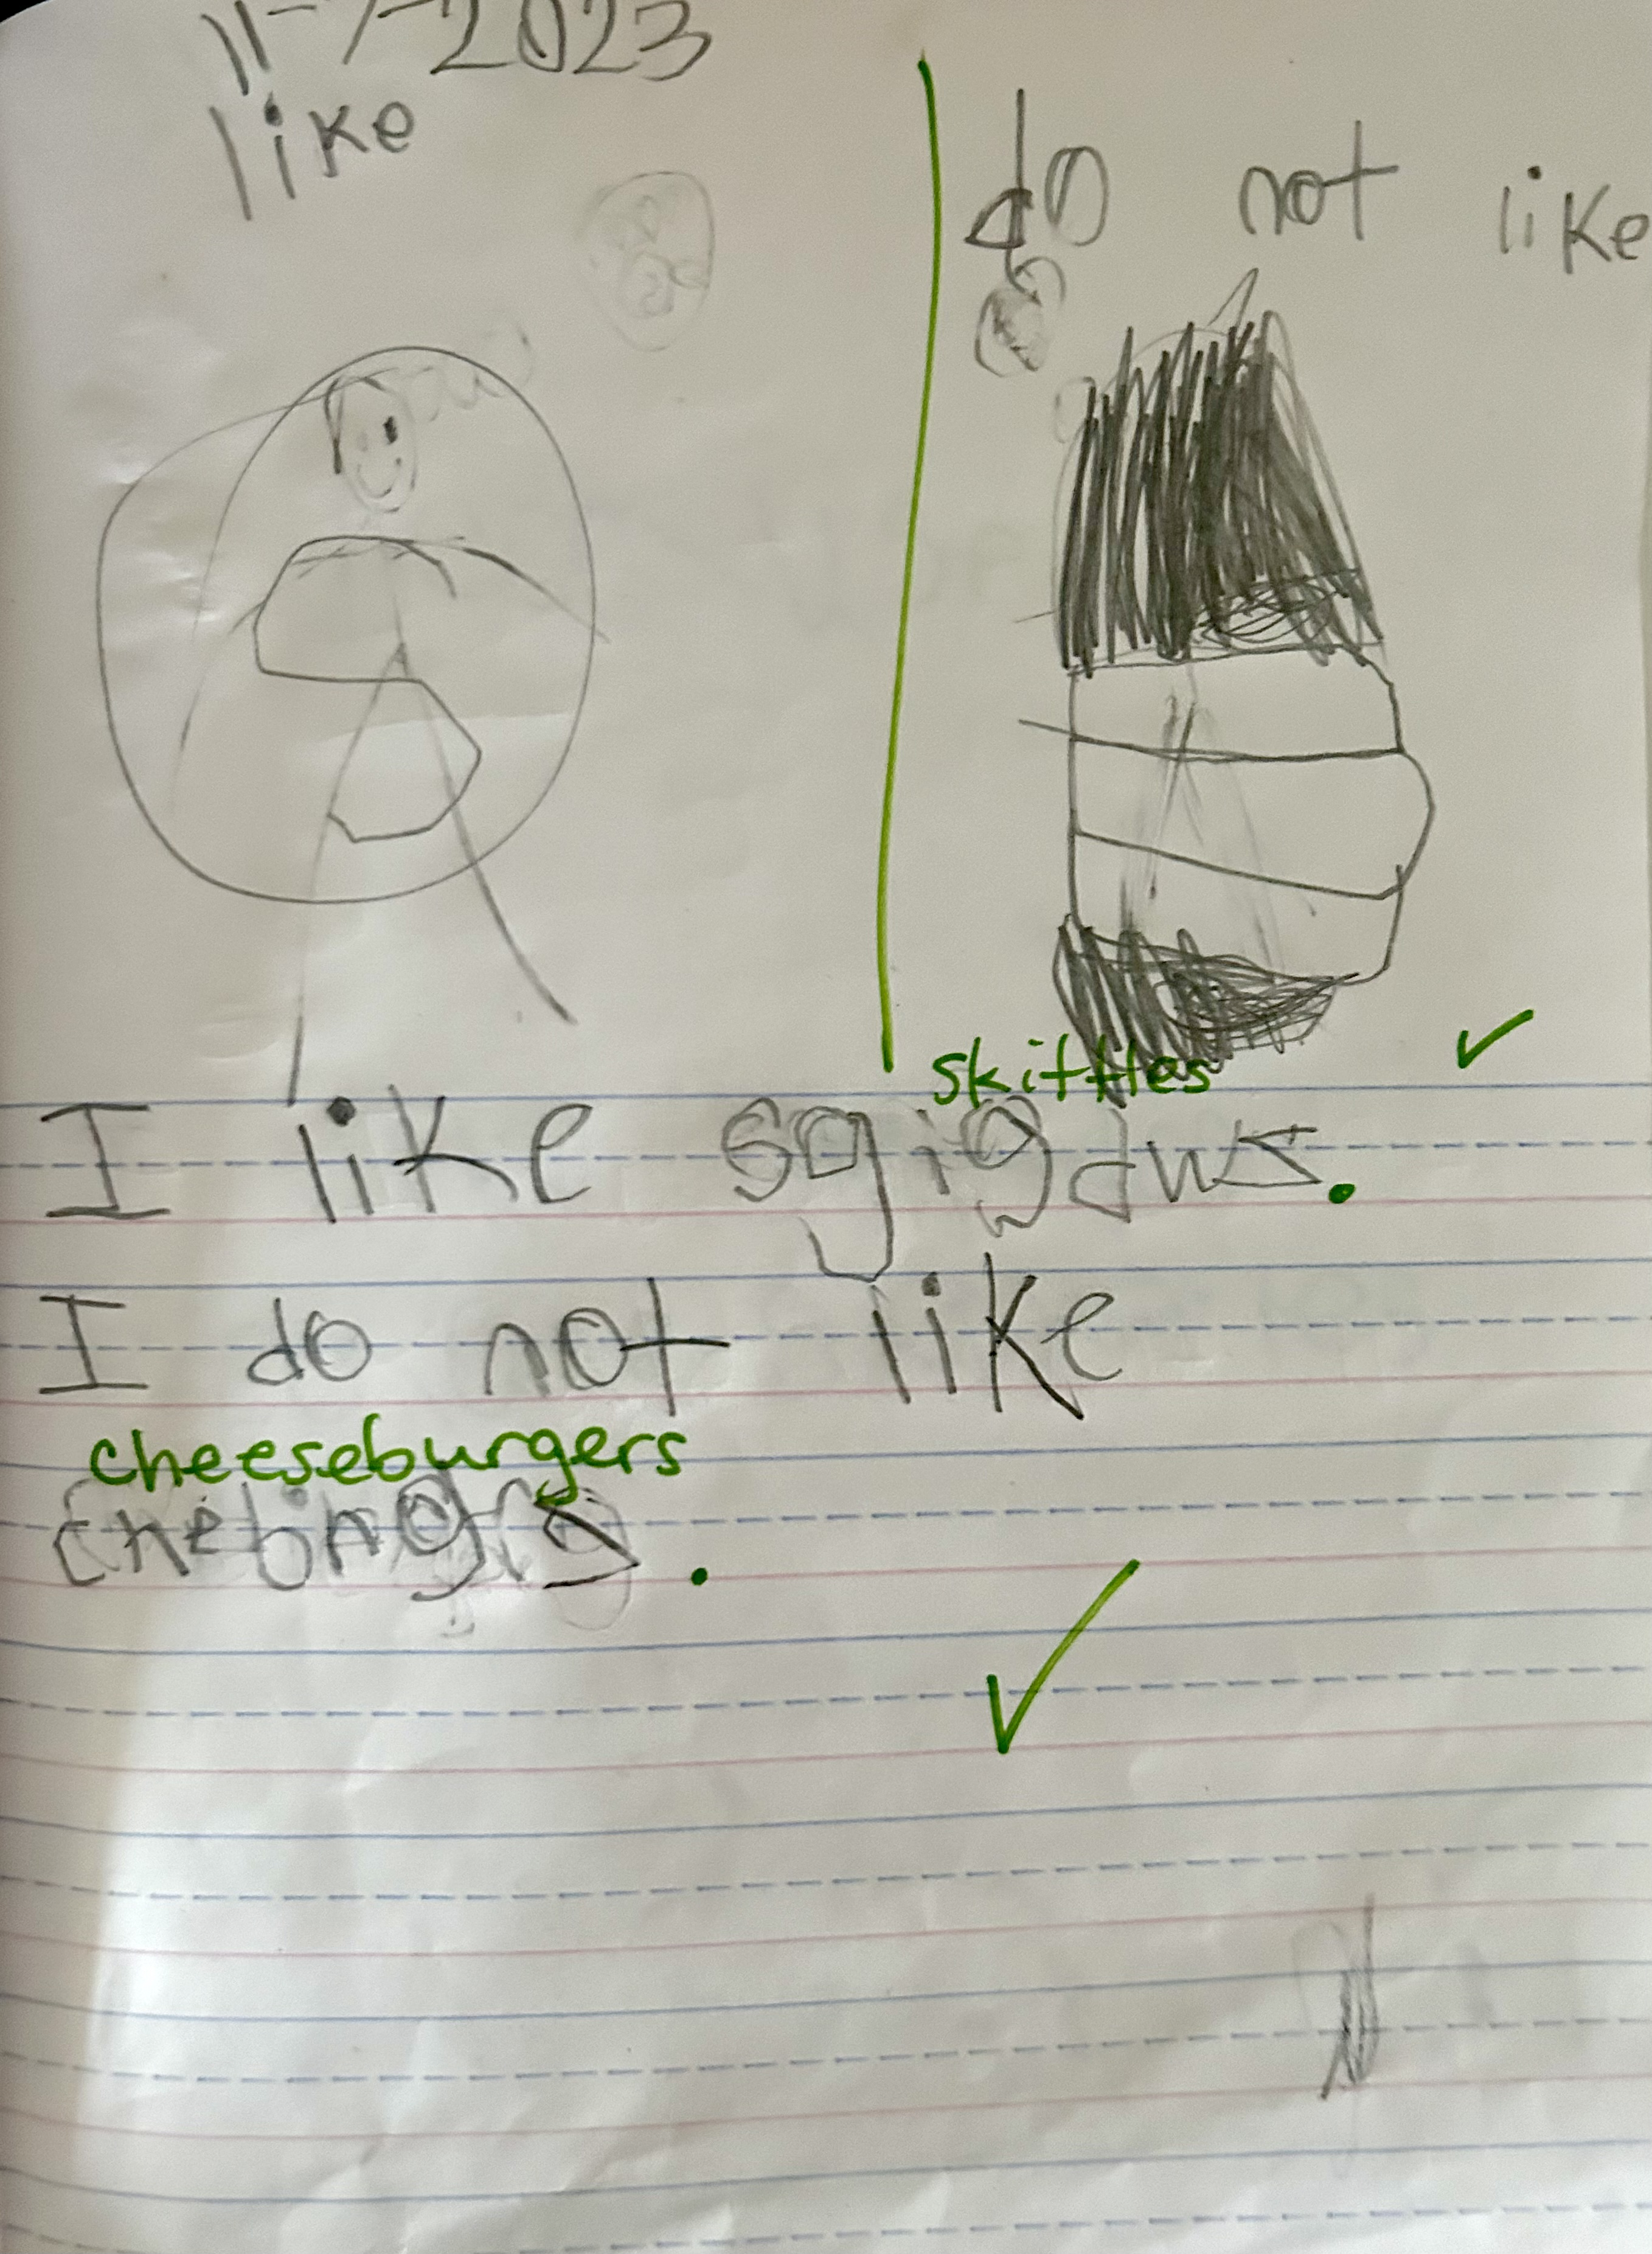 11-7-2023
like
do not like
skittles
I like sgigdus.
I do not like
cheeseburgers
chebngrs.